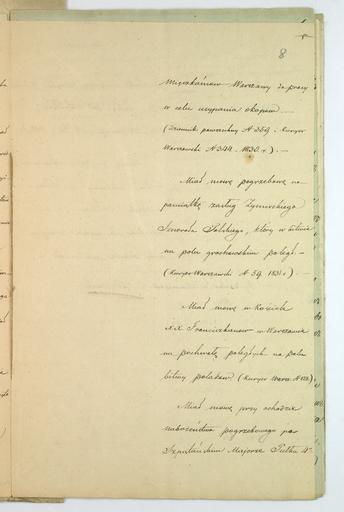 8
mieszkańców Warszawy do pracy
w celu usypania okopów —
(Dziennik powszechny N 339 i Kuryer
Warszawski N 344 1830 r.). —
Miał mowę pogrzebową na
pamiątkę zasług Żymirskiego
Jenerała Polskiego, który w bitwie
na polu grochowskiem poległ —
(Kuryer Warszawski N 59 1831 r.) —
Miał mowę w Kościele
XX Franciszkanów w Warszawie
na pochwałę poległych na polu
bitwy polaków (Kuryer Warsz. N 128)
Miał mowę przy obchodzie
nabożeństwa pogrzebowego po
Majorze Pułku 4